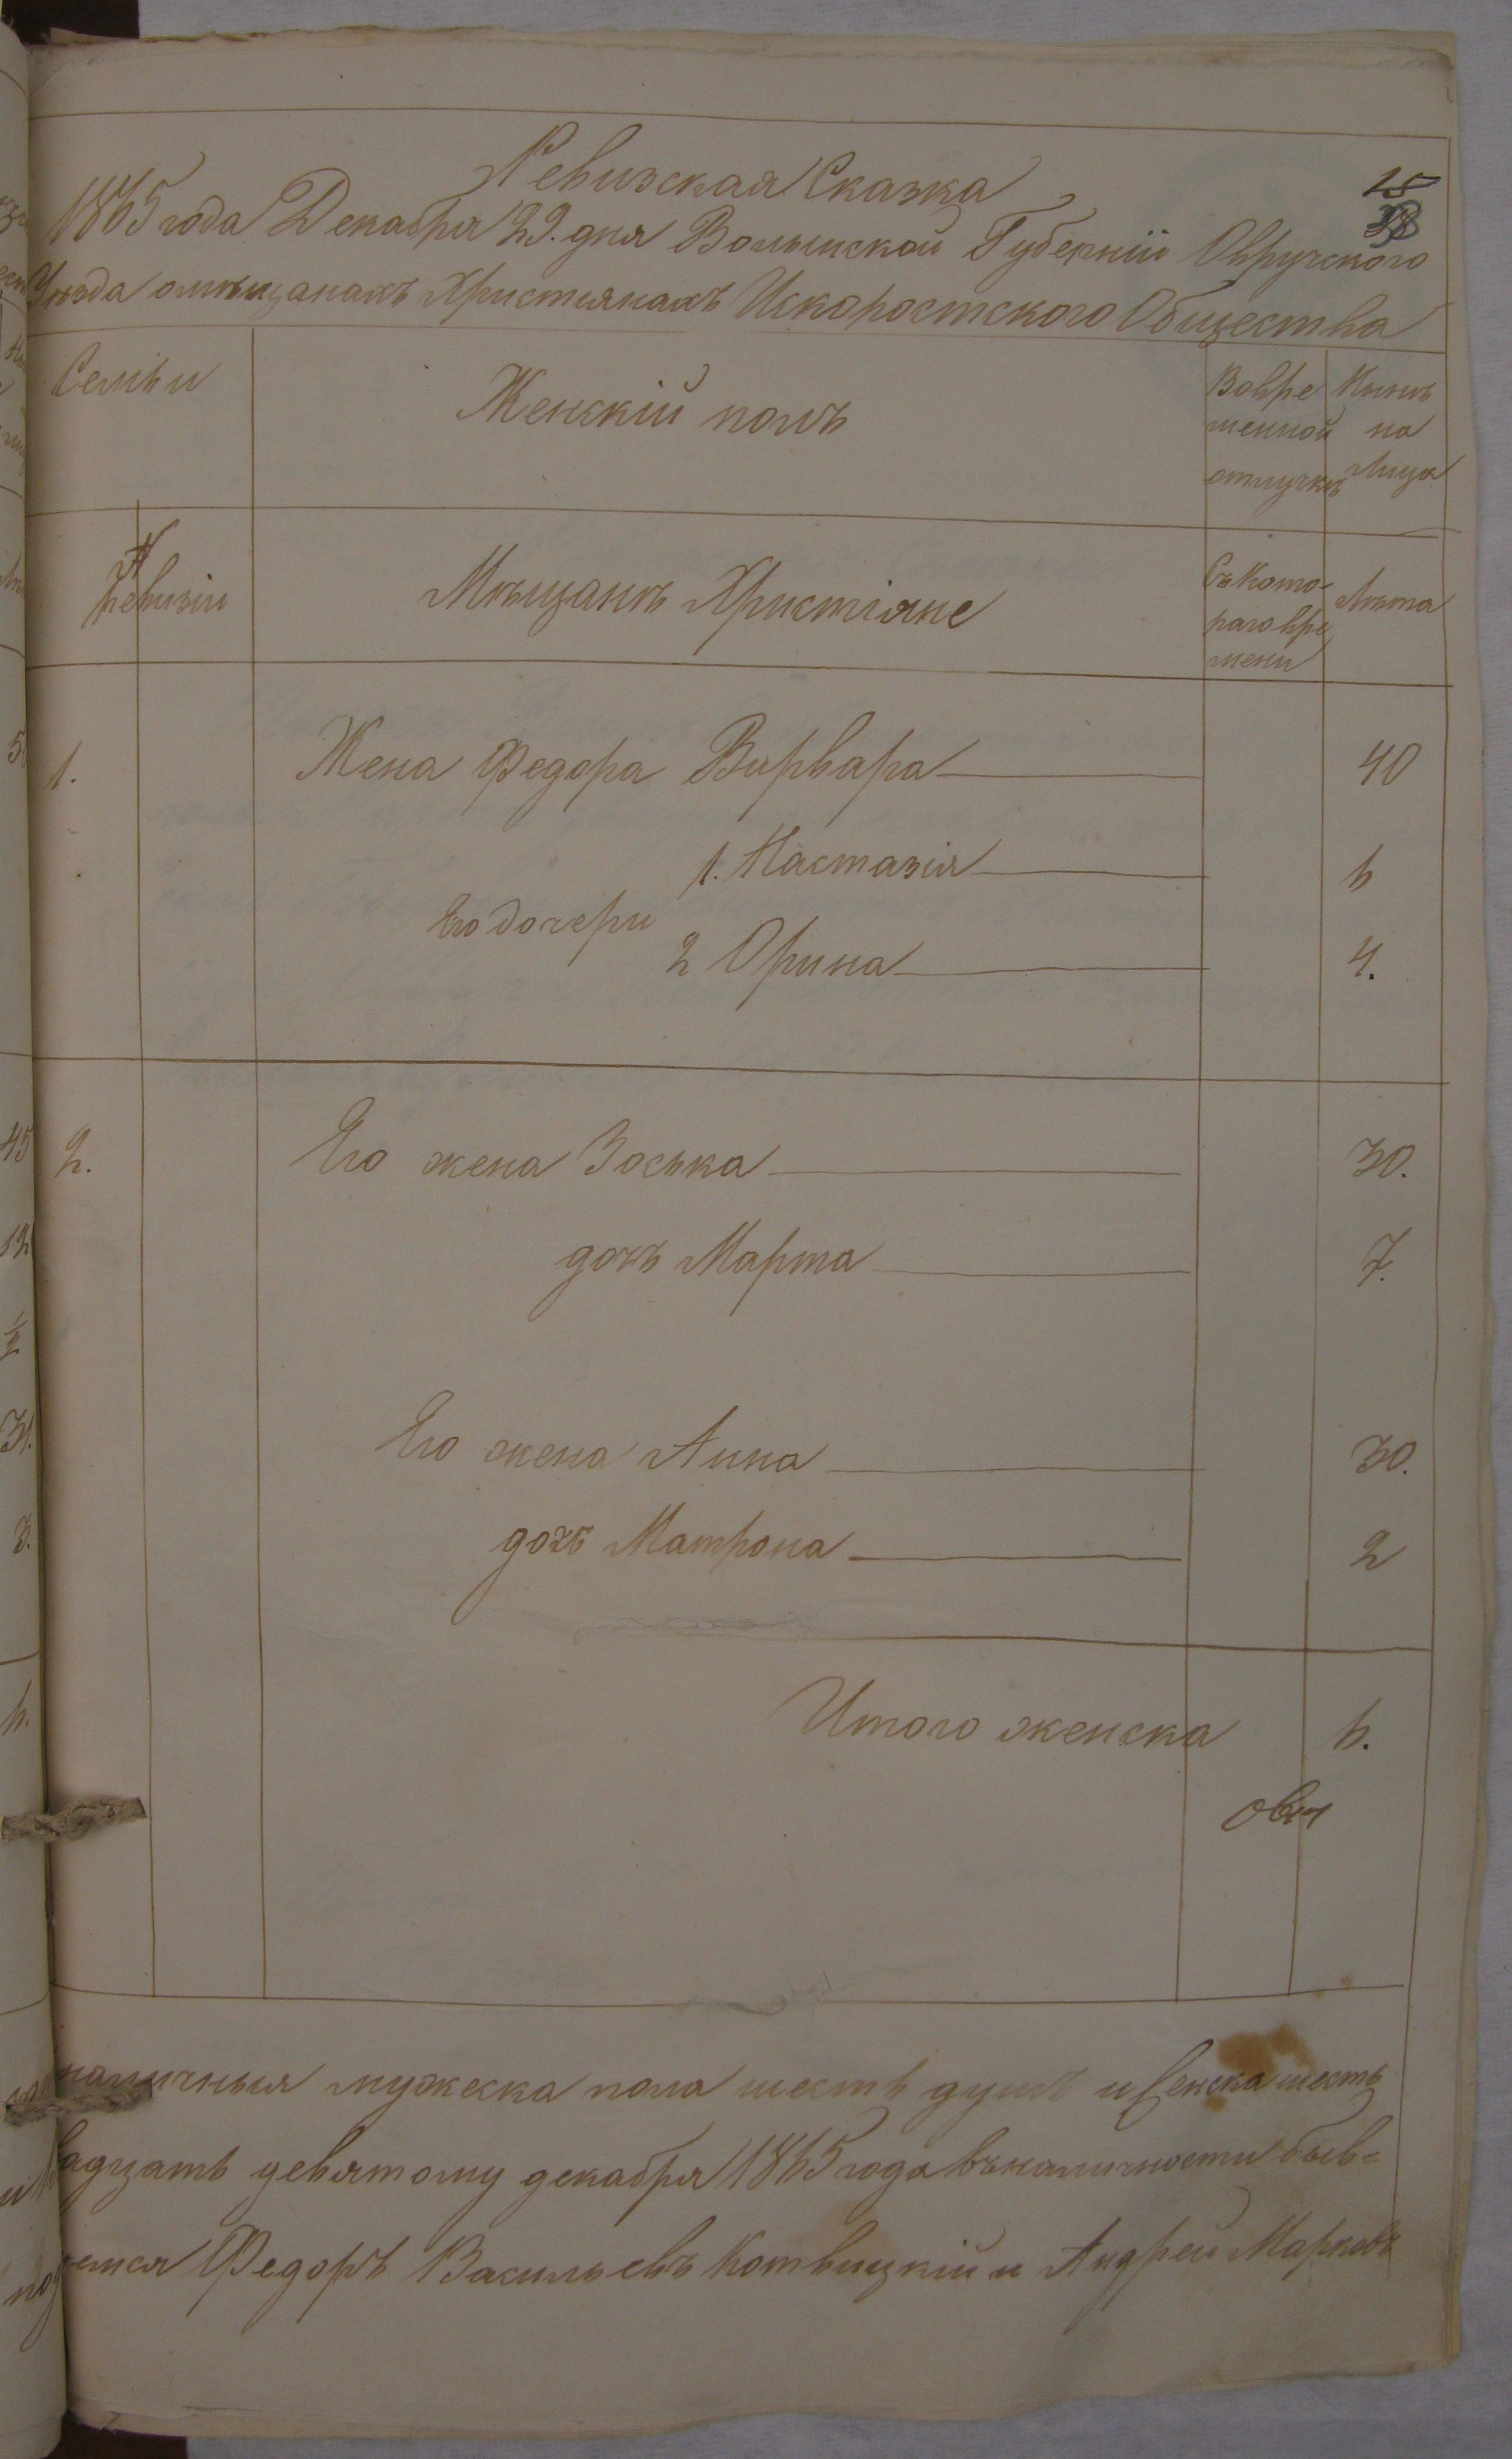 Ревизская Сказка
15
38
1865 года Декабря 29. дня Волынской Губернiи Овручского
Уѣзда омѣщанахъ Християнахъ Искоростского Общества
Семьи
Женскiй полъ
Вовре
менной
отлучкѣ
Нынѣ
на
Лица
№
Ревизiи
Мѣщанъ Христiяне
Съ Кото-
раго вре
мени
Лѣта
1. Жена Федора Варвара 40
1. Настазiя 6
Его дочери
2 Орина 4.
2. Его жена Зоська 30.
дочь Марта 7.
Его жена Анна 30.
дочь Матрона 2
Итого женска 6.
наличныя мужеска пола шесть душъ и женска шесть
адцать девятому декабря 1865 года въналичности быв=
емся Федоръ Васильевъ Котвицкiй и Андрей Марковъ